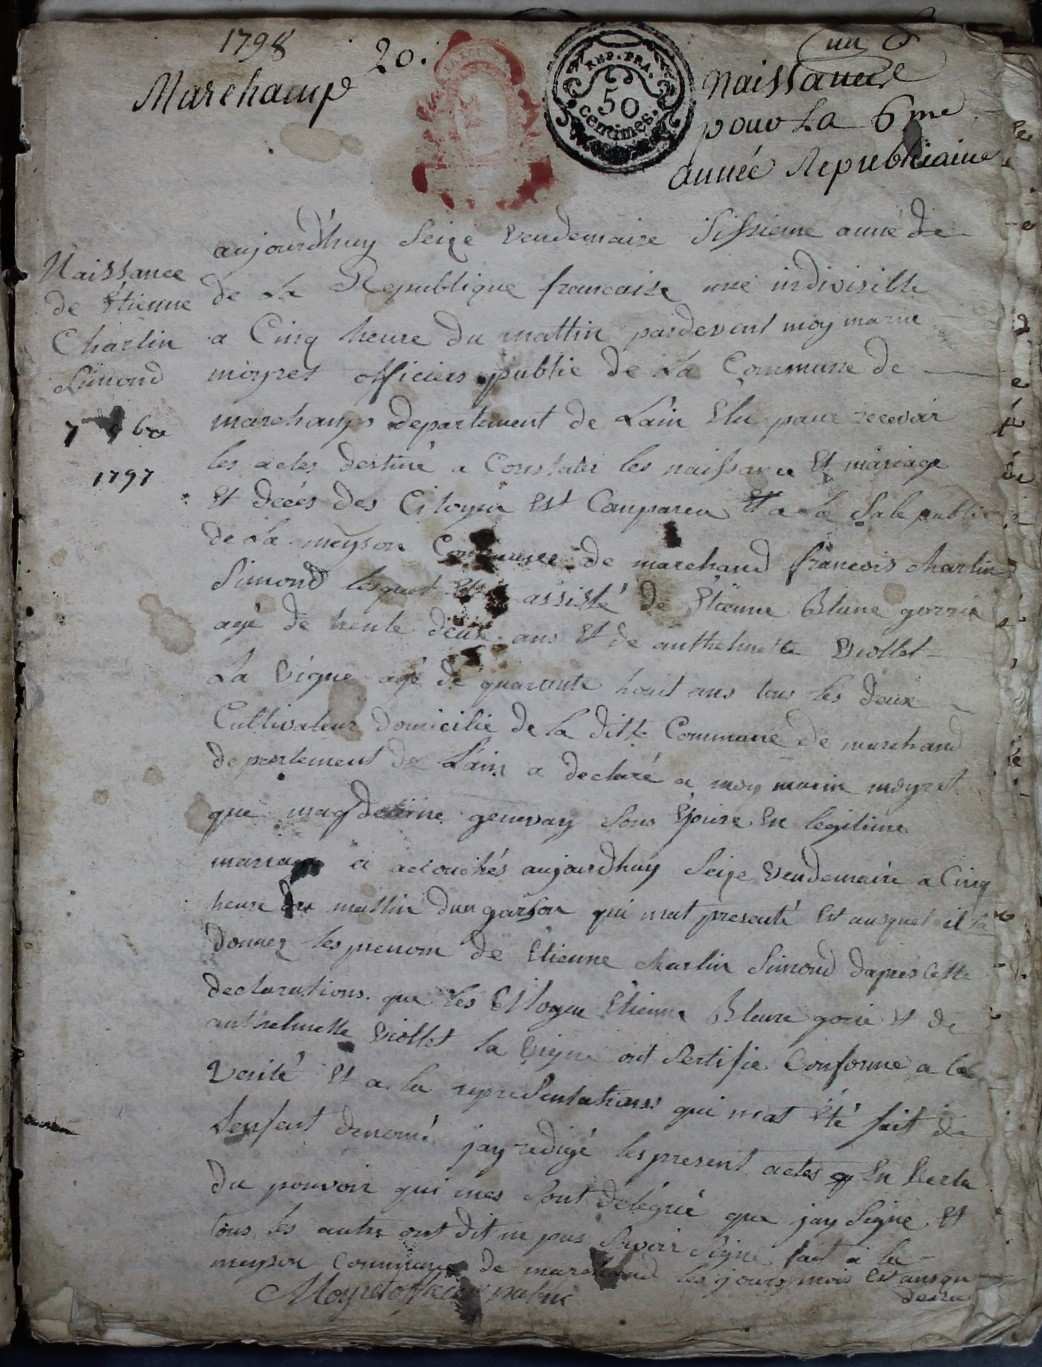 1798
Marchamp
20.
REP. FRA.
50
centimes.
un 6
naissance
pour La 6me
année Republicaine
Naissance
de Étienne
Charlin
Simond
7
1797
aujourdhuy Seize vendemaire Sissieme anné de
de La Republique francaise une indivisible
a Cinq heure du mattin pardevent moy marin
moyret officiers public de La Commune de
marchamp departement de Lain Elu pour recevoir
les actes destiné a Constater les naissance Et mariage
Et décés des Citoyen Est Compareu a la Sale public
de la meyson Commune de marchand francois charlin
Simond lesquel assisté de Étienne Blanc
agé de trente deux ans Et de anthelmette viollet
La vigne agé de quarante huit ans tous les deux
Cultivateur domicilié de la ditte Commune de marchand
departement de Lain a declaré a moy marin moyret
que magdeleine genevay Sons Epouse En legitime
mariage a acouchés aujourdhuy Seize vendemaire a Cinq
heure du mattin dun garson qui mat presenté Et auquel il a
donnez les prenom de Etienne charlin Simond dapres cette
declarations que les Citoyen Étienne Blanc Et de
anthelmette viollet la vigne ont Sertifie Conforme a la
verité Et a la representations qui mat été fait de
lenfant denomé jay redigé les present actes En vertu
du pouvoir qui mes Sont délégué que jay Signé Et
tous les autre ont dit ne pas Savoir Signe fait a la
meyson Commune de marchand les jours mois Et ansqu
dessu
Moyret officier public